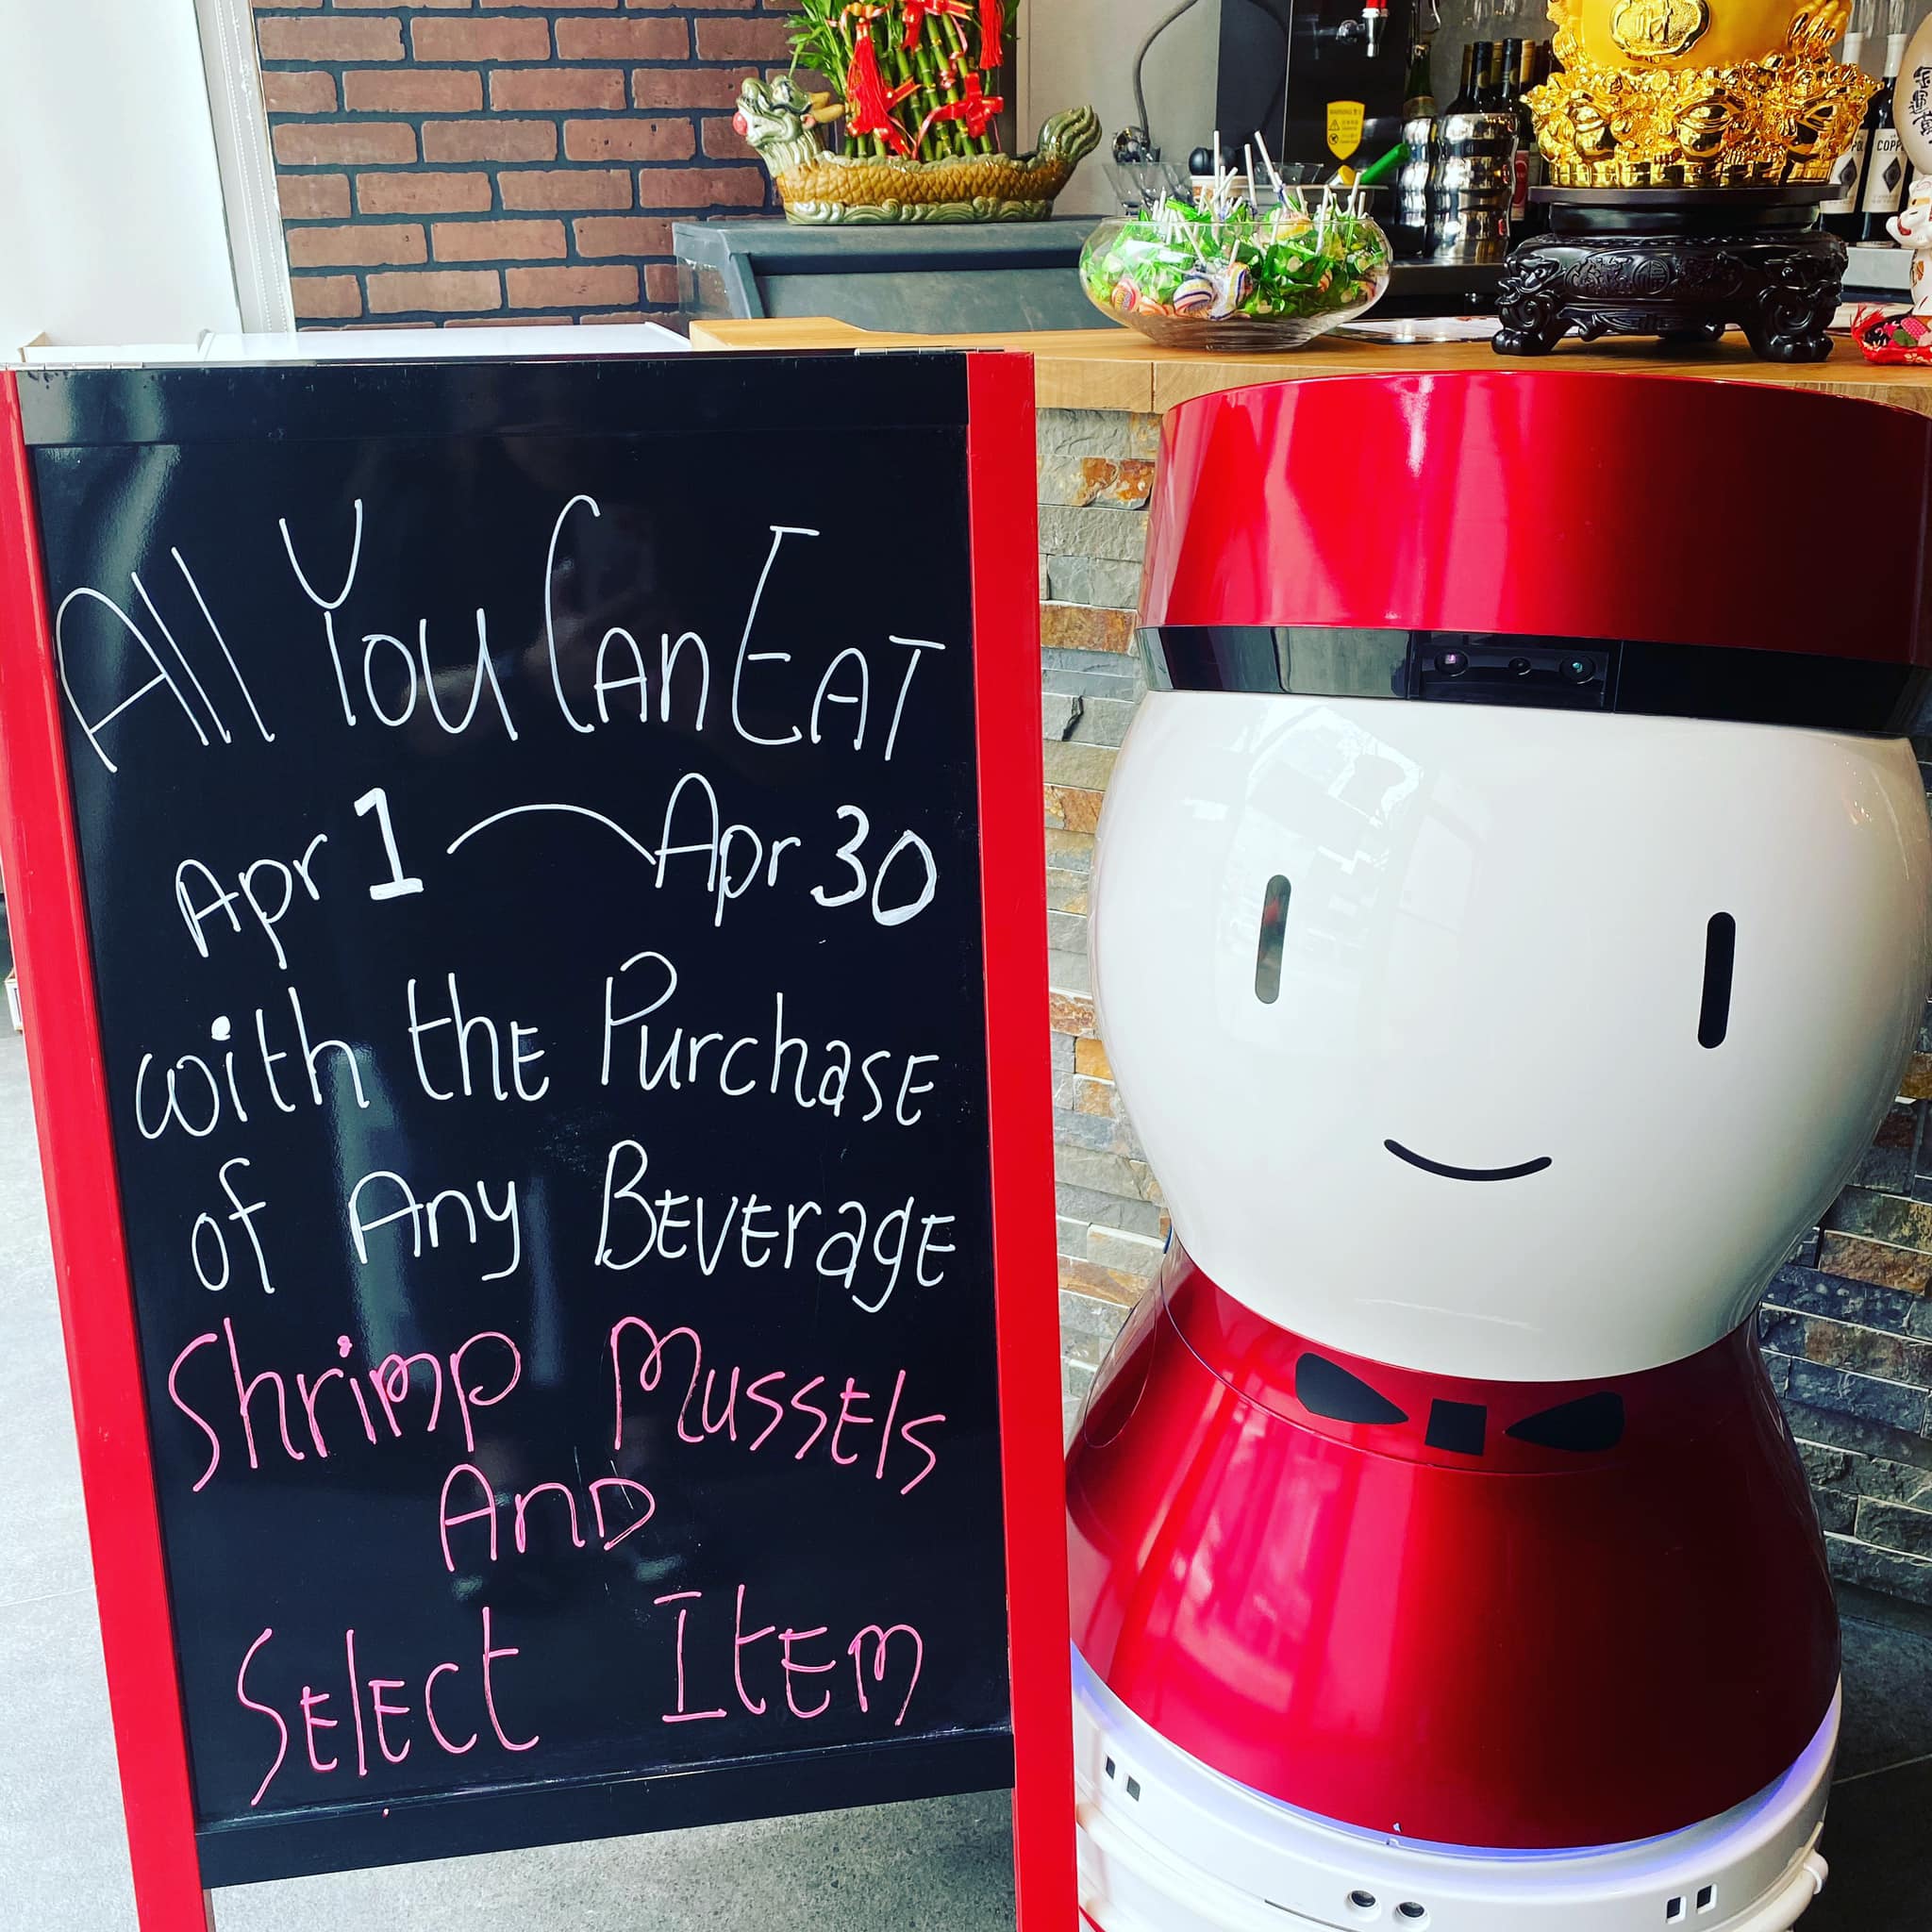 All You Can Eat
Apr 1 Apr 30
with the Purchase
of Any Beverage
Shrimp Mussels
And
Select Item